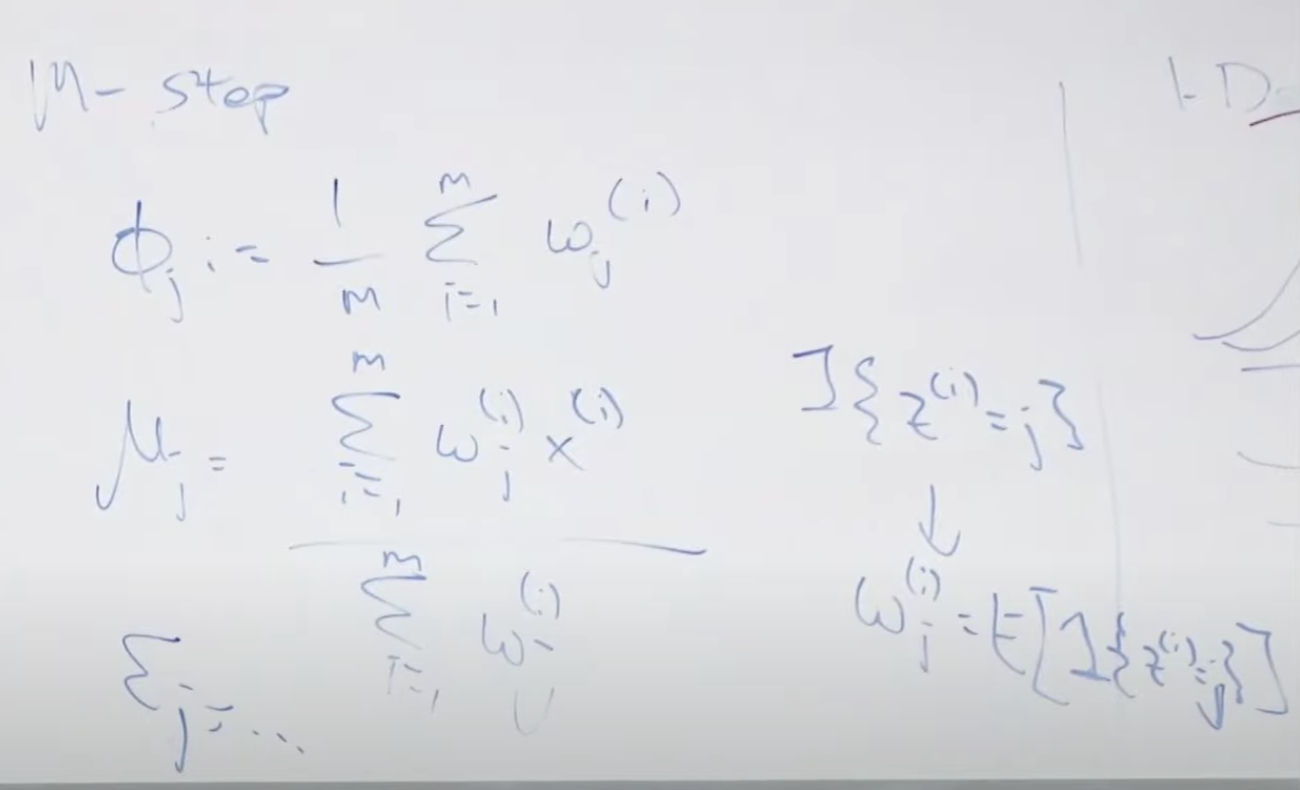 M-step
ϕ_j := 1/m Σ_{i=1}^{m} ω_j^{(i)}
μ_j = Σ_{i=1}^{m} ω_j^{(i)} x^{(i)} / Σ_{i=1}^{m} ω_j^{(i)}
Σ_j = ...
1{z^{(i)} = j}
↓
ω_j^{(i)} = E[1{z^{(i)} = j}]
1-D